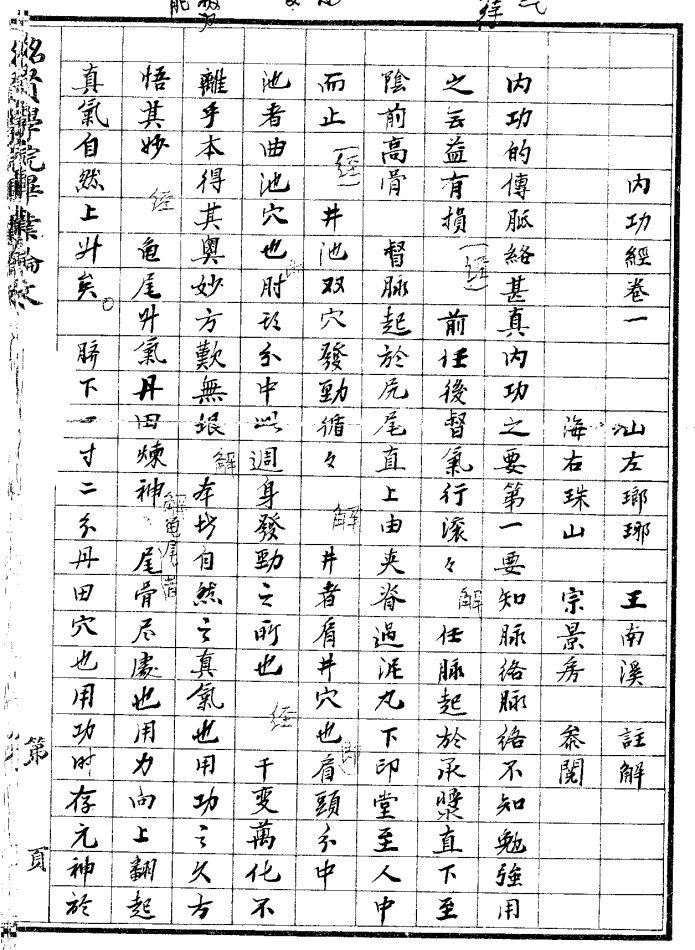 內功經卷一
汕左瑯琊 王南溪 註解
海右珠山 宗景房 叅閱
內功的傳脈絡甚真內功之要第一要知脈絡脈絡不知勉強用
之無益有損(經)前任後督氣行滾々解任脈起於承漿直下至
陰前高骨 督脈起於尻尾直上由夾脊過泥丸下印堂至人中
而止(經)井池双穴發勁循々 解 井者肩井穴也肩頭分中
池者曲池穴也肘頭分中此週身發勁之所也 経 千變萬化不
離乎本得其奧妙方歎無垠 解 本坊自然之真氣也用功之久方
悟其妙 経 龟尾升氣丹田煉神 解龟尾者尾骨尽處也用力向上翻起
真氣自然上升矣。臍下一寸二分丹田穴也用功时存元神於
銘賢學院畢業論文
第 頁